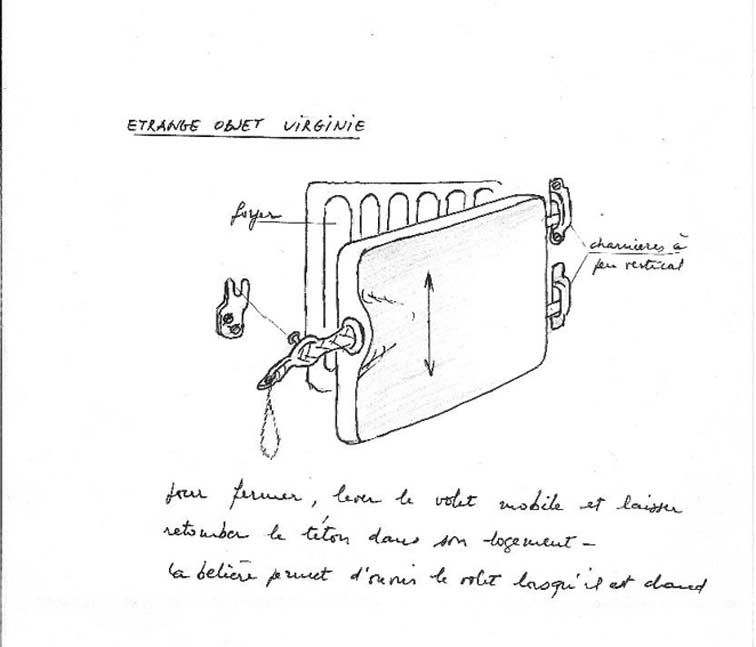 ETRANGE OBJET VIRGINIE
foyer
charnières à
jeu vertical
pour fermer, lever le volet mobile et laisser
retomber le téton dans son logement –
la belière permet d'ouvrir le volet lorsqu'il est chaud